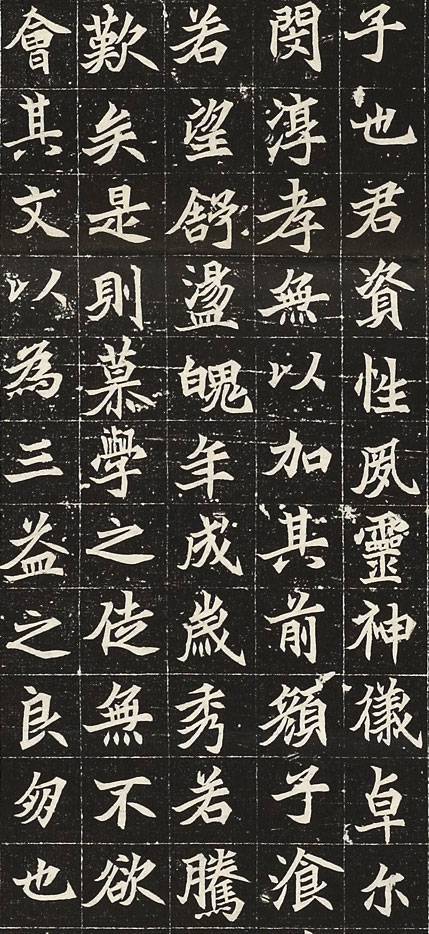 子也君資性夙靈神儀卓尔
閔淳孝無以加其前顏子湌
若望舒盪魄年成歲秀若騰
歎矣是則慕學之徒無不欲
會其文以為三益之良朋也